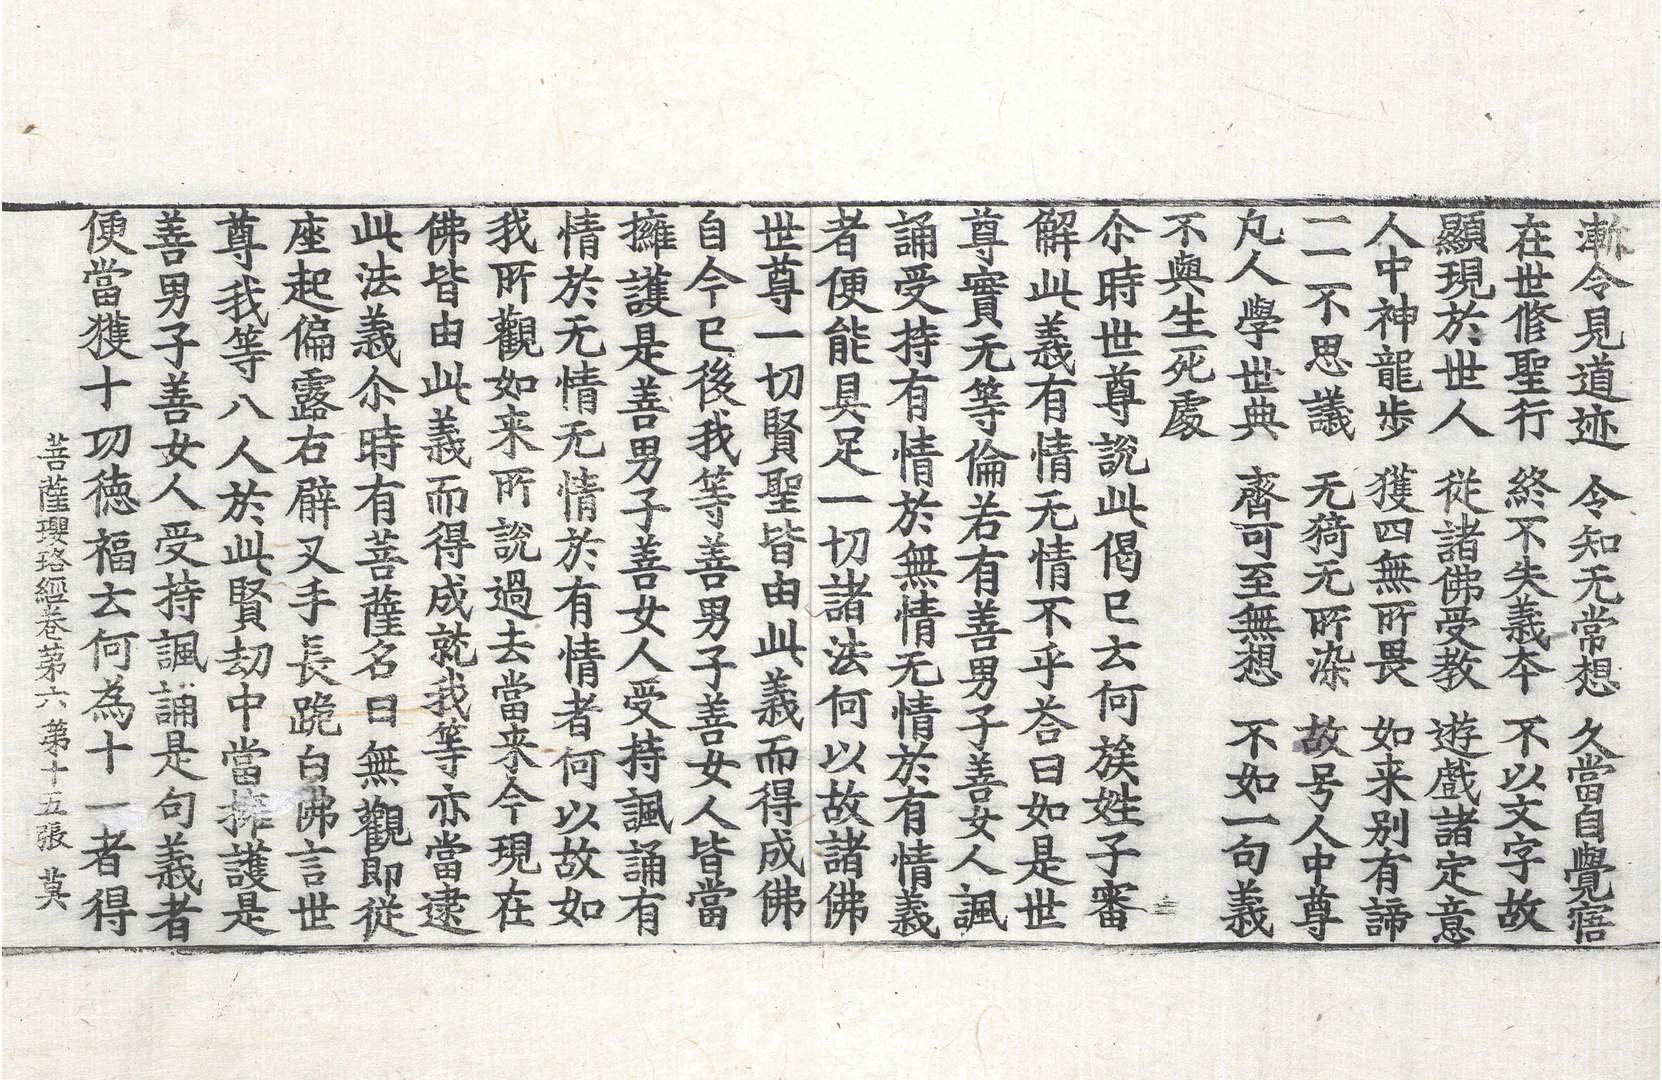 漸令見道迹　令知无常想　久當自覺寤
在世修聖行　終不失義本　不以文字故
顯現於世人　從諸佛受教　遊戲諸定意
人中神龍步　獲四無所畏　如来别有諦
一一不思議　无猗无所染　故号人中尊
凡人學世典　齊可至無想　不如一句義
不與生死處
尒時世尊說此偈已云何族姓子審
解此義有情无情不乎荅曰如是世
尊實无等倫若有善男子善女人諷
誦受持有情於無情无情於有情義
者便能具足一切諸法何以故諸佛
世尊一切賢聖皆由此義而得成佛
自今已後我等善男子善女人皆當
擁護是善男子善女人受持諷誦有
情於无情无情於有情者何以故如
我所觀如来所說過去當来今現在
佛皆由此義而得成就我等亦當逮
此法義尒時有菩薩名曰無觀即從
座起偏露右臂叉手長跪白佛言世
尊我等八人於此賢劫中當擁護是
善男子善女人受持諷誦是句義者
便當獲十功徳福云何為十一者得
菩薩瓔珞經卷苐六　第十五張　莫